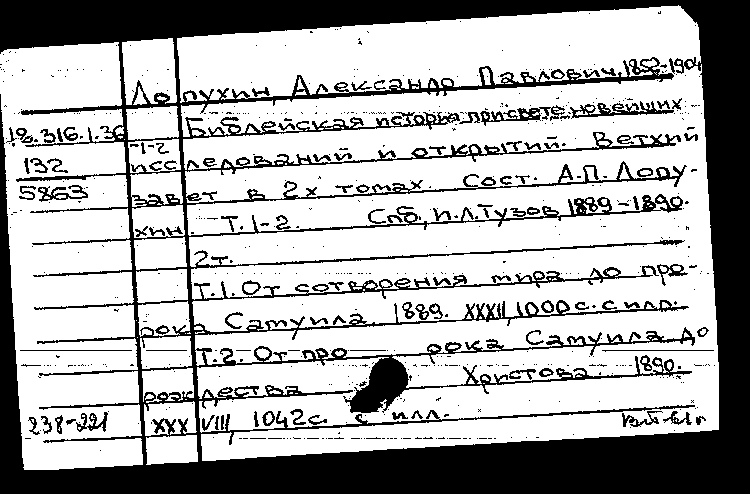 Лопухин, Александр Павлович, 1852-1904
18.316.1.36 Библейская история при свете новейших
132 1-2 исследований и открытий. Ветхий
5863 завет в 2х томах. Сост. А.П. Лопу-
хин. Т. 1-2. Спб, И.Л.Тузов, 1889-1890.
2т.
Т.1. От сотворения мира до про-
рока Самуила. 1889. XXXII, 1000 с. с илл.
Т.2. От про рока Самуила до
рождества Христова. 1890.
238-221 XXXVIII, 1042с. с илл.